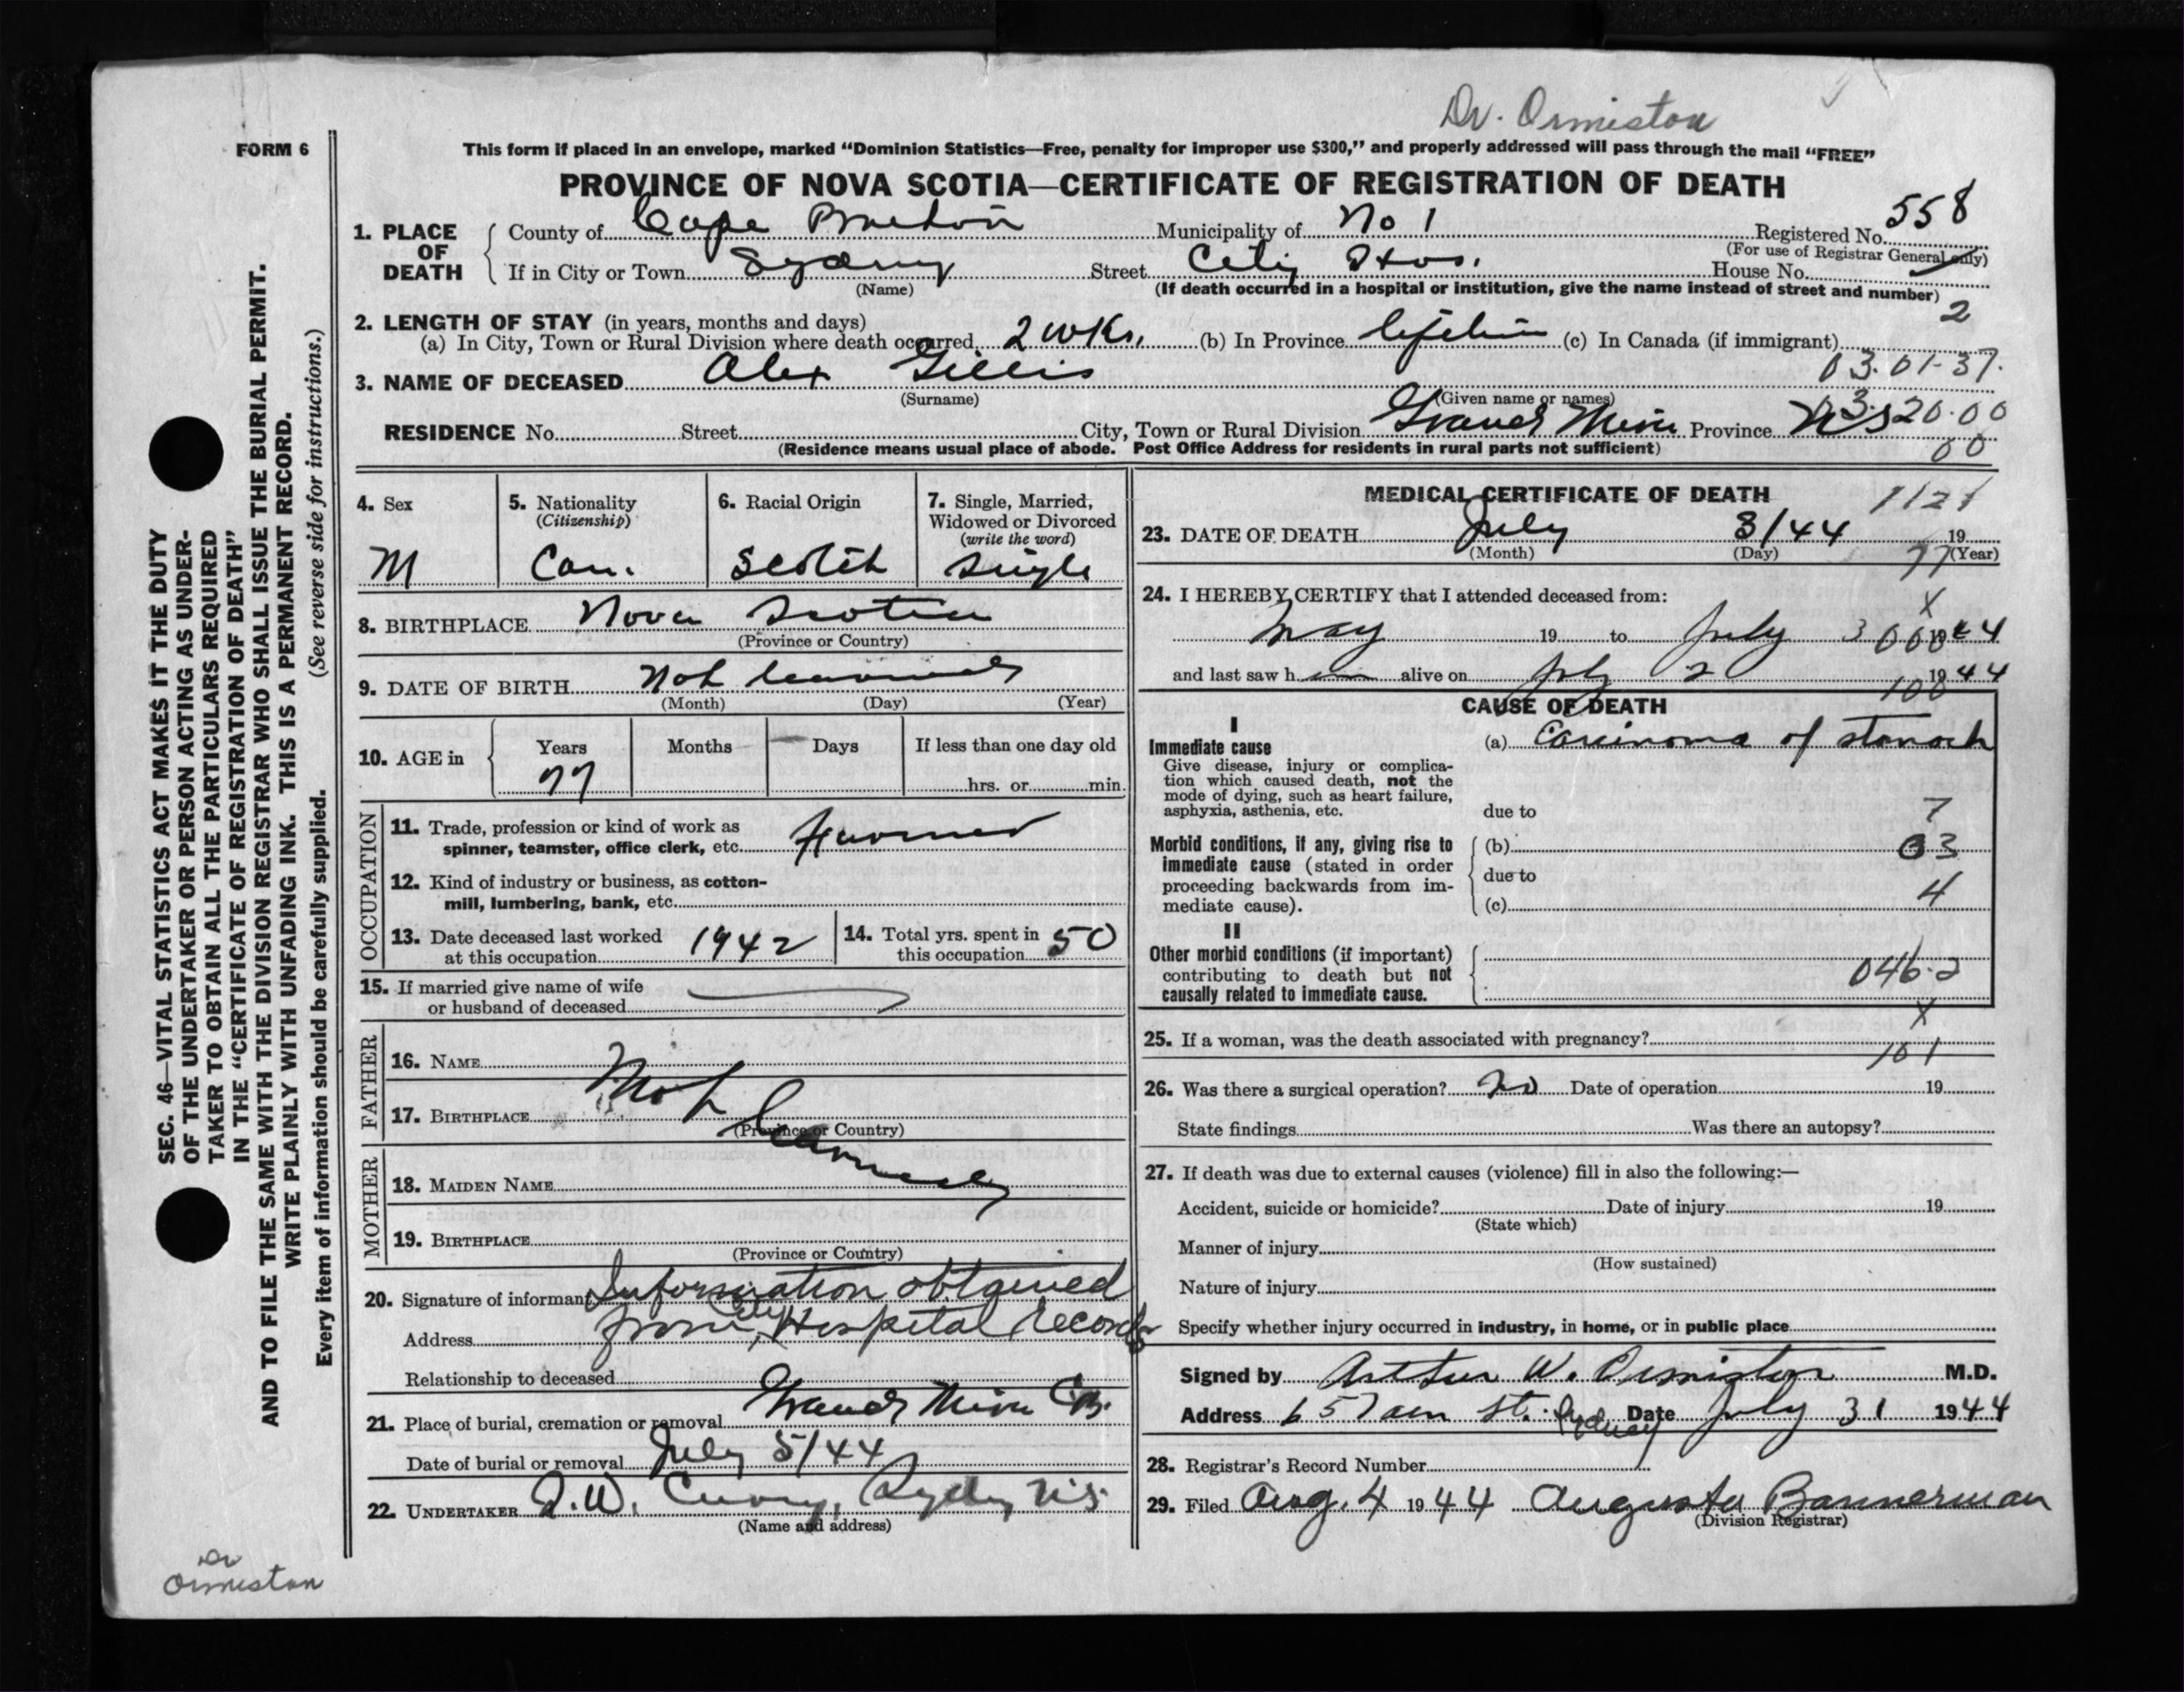 Dr. Ormiston
FORM 6
This form if placed in an envelope, marked “Dominion Statistics—Free, penalty for improper use $300,” and properly addressed will pass through the mail “FREE”
PROVINCE OF NOVA SCOTIA—CERTIFICATE OF REGISTRATION OF DEATH
1. PLACE OF DEATH
County of Cape Breton Municipality of No 1 Registered No. 558
(For use of Registrar General only)
If in City or Town Sydney Street City Hos. House No.
(Name) (If death occurred in a hospital or institution, give the name instead of street and number)
2
2. LENGTH OF STAY (in years, months and days)
(a) In City, Town or Rural Division where death occurred 2 wks. (b) In Province lifetime (c) In Canada (if immigrant)
03.01-37.
3. NAME OF DECEASED Alex Gillis
(Surname) (Given name or names)
RESIDENCE No. Street City, Town or Rural Division Grand Mira Province N.S. 03.20.00
(Residence means usual place of abode. Post Office Address for residents in rural parts not sufficient)
00
4. Sex M
5. Nationality (Citizenship) Can.
6. Racial Origin Scotch
7. Single, Married, Widowed or Divorced (write the word) single
8. BIRTHPLACE Nova Scotia
(Province or Country)
9. DATE OF BIRTH Not learned
(Month) (Day) (Year)
10. AGE in Years 77 Months Days If less than one day old
hrs. or min.
OCCUPATION
11. Trade, profession or kind of work as spinner, teamster, office clerk, etc. Farmer
12. Kind of industry or business, as cotton-mill, lumbering, bank, etc.
13. Date deceased last worked at this occupation 1942
14. Total yrs. spent in this occupation 50
15. If married give name of wife or husband of deceased
FATHER
16. NAME
17. BIRTHPLACE
(Province or Country)
Not learned
MOTHER
18. MAIDEN NAME
19. BIRTHPLACE
(Province or Country)
20. Signature of informant Information obtained
Address from City Hospital records
Relationship to deceased
21. Place of burial, cremation or removal Grand Mira C.B.
Date of burial or removal July 5/44
22. UNDERTAKER Curry, Sydney N.S.
(Name and address)
MEDICAL CERTIFICATE OF DEATH
1121
23. DATE OF DEATH July 3/44 19
(Month) (Day) (Year)
77
24. I HEREBY CERTIFY that I attended deceased from:
X
May 19 to July 3 1944
000
and last saw him alive on July 2 1944
100
CAUSE OF DEATH
I
Immediate cause
Give disease, injury or complication which caused death, not the mode of dying, such as heart failure, asphyxia, asthenia, etc.
(a) Carcinoma of stomach
due to
7
Morbid conditions, if any, giving rise to immediate cause (stated in order proceeding backwards from immediate cause).
(b) 03
due to
4
(c)
II
Other morbid conditions (if important) contributing to death but not causally related to immediate cause.
046.2
X
25. If a woman, was the death associated with pregnancy?
101
26. Was there a surgical operation? no Date of operation 19
State findings Was there an autopsy?
27. If death was due to external causes (violence) fill in also the following:—
Accident, suicide or homicide? Date of injury 19
(State which)
Manner of injury
(How sustained)
Nature of injury
Specify whether injury occurred in industry, in home, or in public place
Signed by Arthur W. Ormiston M.D.
Address St. Sydney Date July 31 1944
28. Registrar's Record Number
29. Filed Aug. 4 1944 Augusta Bannerman
(Division Registrar)
SEC. 46—VITAL STATISTICS ACT MAKES IT THE DUTY
OF THE UNDERTAKER OR PERSON ACTING AS UNDER-
TAKER TO OBTAIN ALL THE PARTICULARS REQUIRED
IN THE “CERTIFICATE OF REGISTRATION OF DEATH”
AND TO FILE THE SAME WITH THE DIVISION REGISTRAR WHO SHALL ISSUE THE BURIAL PERMIT.
WRITE PLAINLY WITH UNFADING INK. THIS IS A PERMANENT RECORD.
Every item of information should be carefully supplied. (See reverse side for instructions.)
Dr
Ormiston